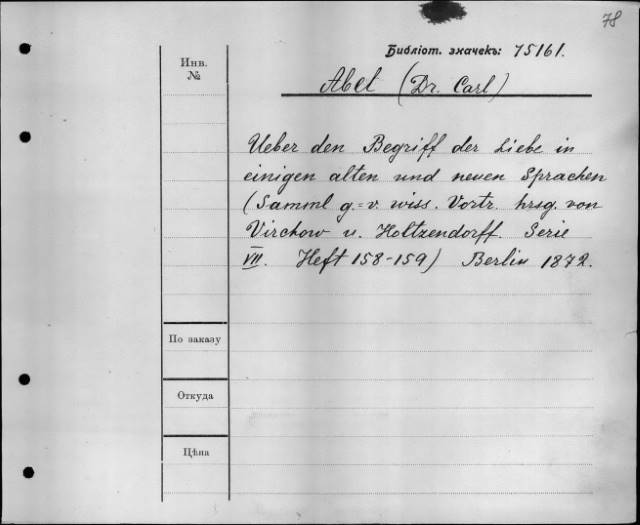 78
Библіот. значекъ: 75161.
Инв.
№
Abel (Dr. Carl)
Ueber den Begriff der Liebe in
einigen alten und neuen Sprachen
(Samml g.=v. wiss. Vortr. hrsg. von
Virchow u. Holtzendorff. Serie
VII. Heft 158-159) Berlin 1872.
По заказу
Откуда
Цѣна